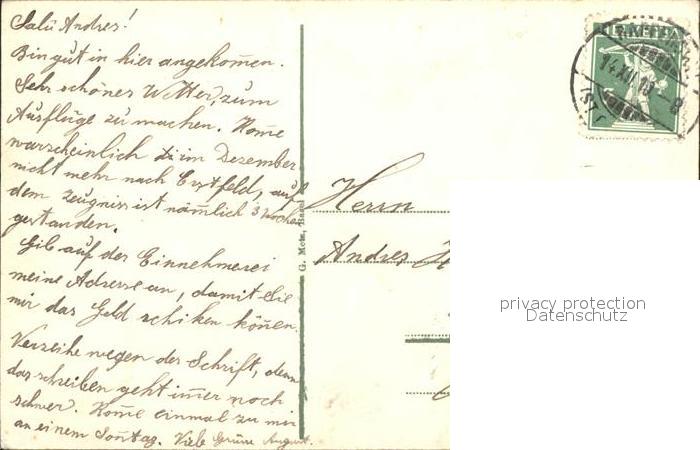 Salü Andres!
Bin gut in hier angekom̅en.
Sehr schönes Wetter, zum
Ausflüge zu machen. Kom̅e
warscheinlich im Dezember
nicht mehr nach Erstfeld, auf
dem Zeugnis ist nämlich 3 Wochen
gestanden.
Gib auf der Einnehmerei
meine Adresse an, damit die
mir das Geld schiken kön̅en.
Verzeihe wegen der Schrift, denn
das schreiben geht im̅er noch
schwer. Kom̅e einmal zu mir
an einem Son̅tag. Viele Grüsse August.
G. Metz, Basel
14.XII.10 - 8
Herrn
Andres
privacy protection
Datenschutz